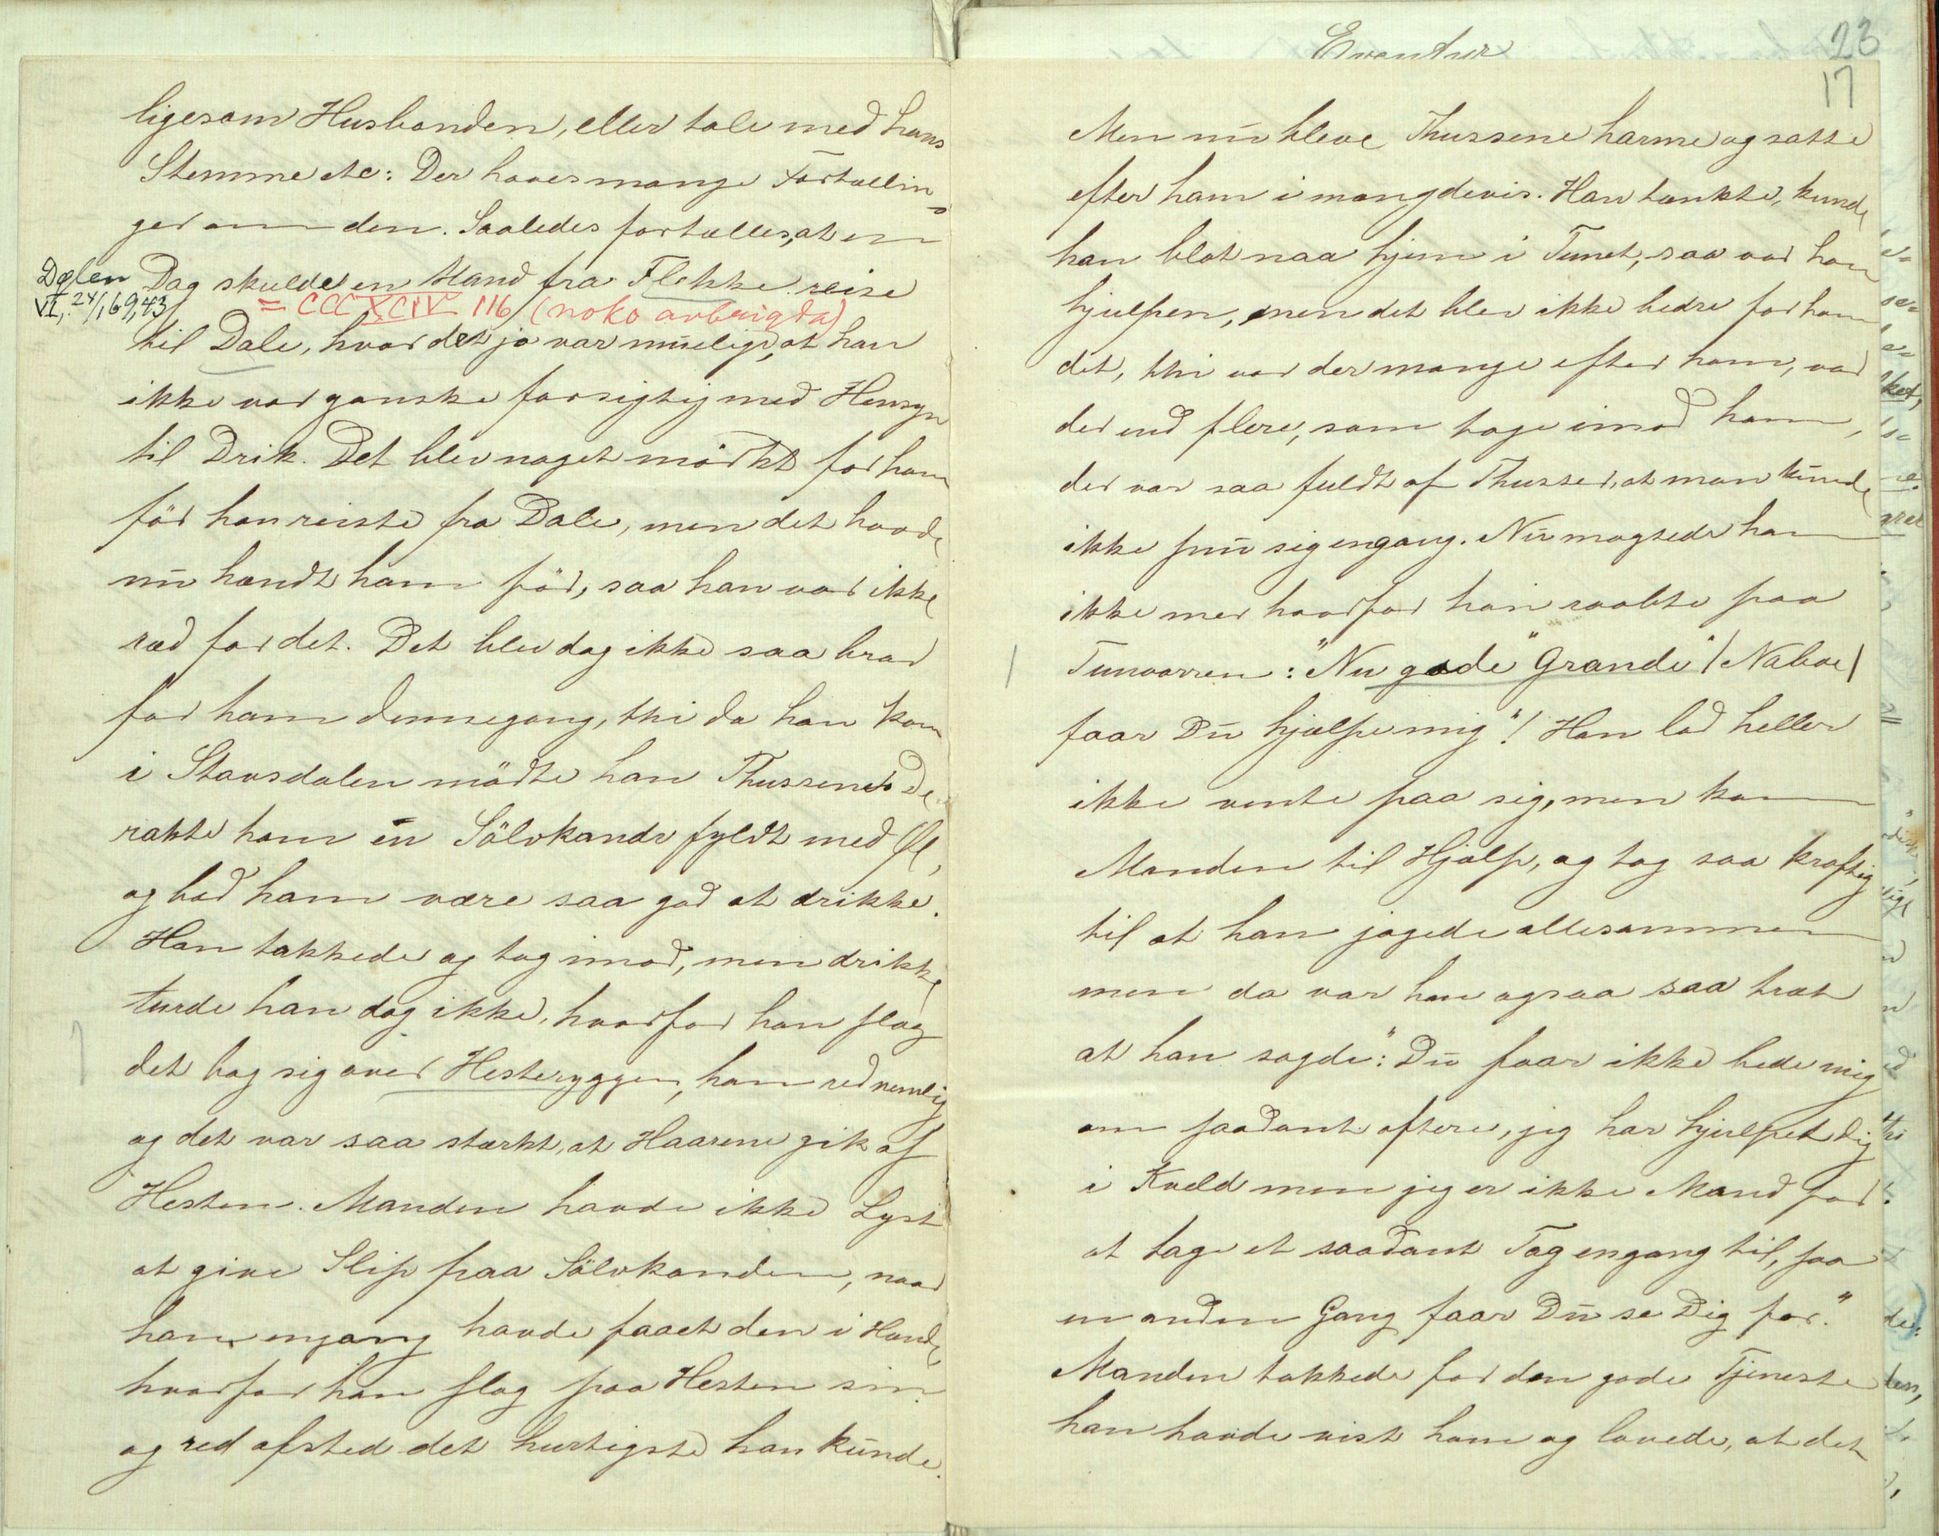 ligesom Husbonden, eller tale med hans
Stemme etc: Der haves mange Fortællin-
ger om den. Saaledes fortælles, at en
Dag skulde en Mand fra Flekke reise
Dølen
VI, 24/, 69, 43
= CCCXCIV 116 (noko avbrigda)
til Dale, hvor det jo var mueligt, at han
ikke var ganske forsigtig med Hensyn
til Drik. Det blev noget mörkt for ham
för han reiste fra Dale, men det havde
nu hændt ham för, saa han var ikke
ræd for det. Det blev dog ikke saa bra
for ham dennegang, thi da han kom
i Stavsdalen mödte han Thussene. De
rakte ham en Sölvkande fyldt med Øl,
og bad ham være saa god at drikke.
Han takkede og tog imod, men drikke
turde han dog ikke, hvorfor han slog
det bag sig over Hesteryggen, han red nemlig
og det var saa stærkt, at Haarene gik af
Hesten. Manden havde ikke Lyst
at give Slip paa Sölvkanden, naar
han engang havde faaet den i Hænde,
hvorfor han slog paa Hesten sin
og red afsted det hurtigste han kunde.
Eventyr
23
17
Men nu bleve Thussene harme og satte
efter ham i mængdevis. Han tænkte, kunde
han blot naa hjem i Tunet, saa var han
hjulpen, men det blev ikke bedre for ham
det, thi var der mange efter ham, var
der end flere, som toge imod ham,
der var saa fuldt af Thusser, at man kunde
ikke snu sig engang. Nu magtede han
ikke mer hvorfor han raabte paa
Tunvorren: "Nu gode "Grande" (Naboe)
faar Du hjælpe mig"! Han lod heller
ikke vente paa sig, men kom
Manden til Hjælp, og tog saa kraftig
til at han jagede allesammen
men da var han ogsaa saa træt
at han sagde: "Du faar ikke bede mig
om saadant oftere, jeg har hjulpet dig
i Kveld men jeg er ikke Mand for
at tage et saadant Tag engang til, saa
en anden Gang faar Du se Dig for."
Manden takkede for den gode Tjeneste
han havde vist ham og lovede, at det